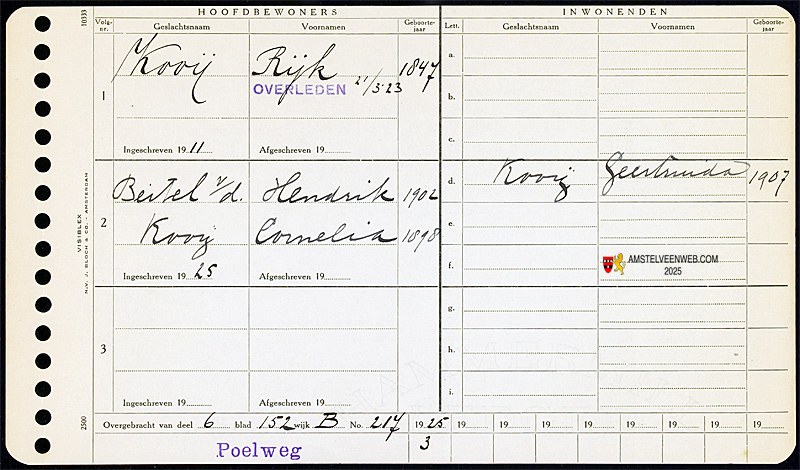 HOOFDBEWONERS INWONENDEN
Volg-nr. Geslachtsnaam Voornamen Geboorte-jaar Lett. Geslachtsnaam Voornamen Geboorte-jaar
10333
1 Kooij Rijk 1847 a.
OVERLEDEN 21/3·23 b.
c.
Ingeschreven 19 11 Afgeschreven 19
2 Beitel v/d. Hendrik 1902 d. Kooij Geertruida 1907
Kooij Cornelia 1898 e.
f. AMSTELVEENWEB.COM
2025
Ingeschreven 19 25 Afgeschreven 19
VISIBLEX
N.V. J. BLOCH & CO. - AMSTERDAM
3 g.
h.
i.
Ingeschreven 19 Afgeschreven 19
2500
Overgebracht van deel 6 blad 152 wijk B No. 217 19 25 19 19 19 19 19 19 19 19
Poelweg 3